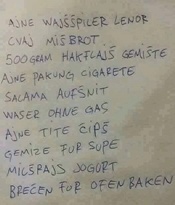 AJNE WAJŠŠPILER LENOR
CVAJ MIŠBROT
500 GRAM HAKFLAJŠ GEMIŠTE
AJNE PAKUNG CIGARETE
SALAMA AUFŠNIT
WASER OHNE GAS
AJNE TITE ČIPŠ
GEMIZE FUR SUPE
MILŠRAJS JOGURT
BREČEN FUR OFEN BAKEN